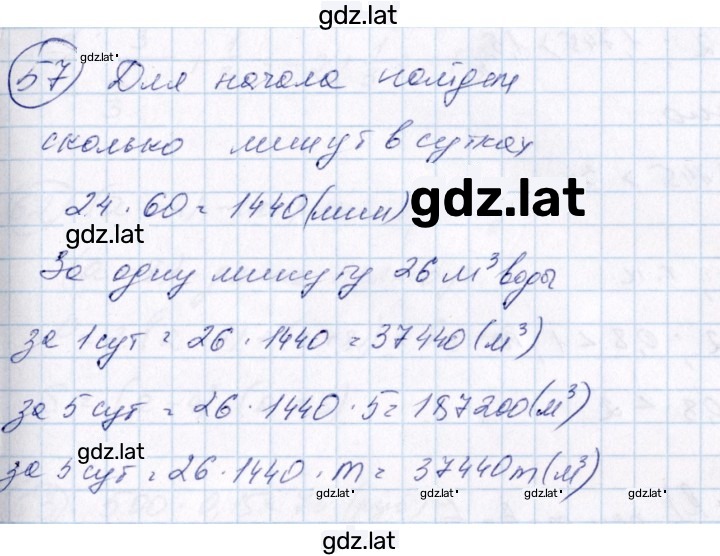 gdz.lat
57 Для начала найдем
gdz.lat
сколько минут в сутках
24 · 60 = 1440 (мин)
gdz.lat
gdz.lat
За одну минуту 26 м³ воды
за 1 сут = 26 · 1440 = 37440 (м³)
за 5 сут = 26 · 1440 · 5 = 187200 (м³)
gdz.lat
за 5 сут = 26 · 1440 · m = 37440m (м³)
gdz.lat gdz.lat gdz.lat gdz.lat
gdz.lat